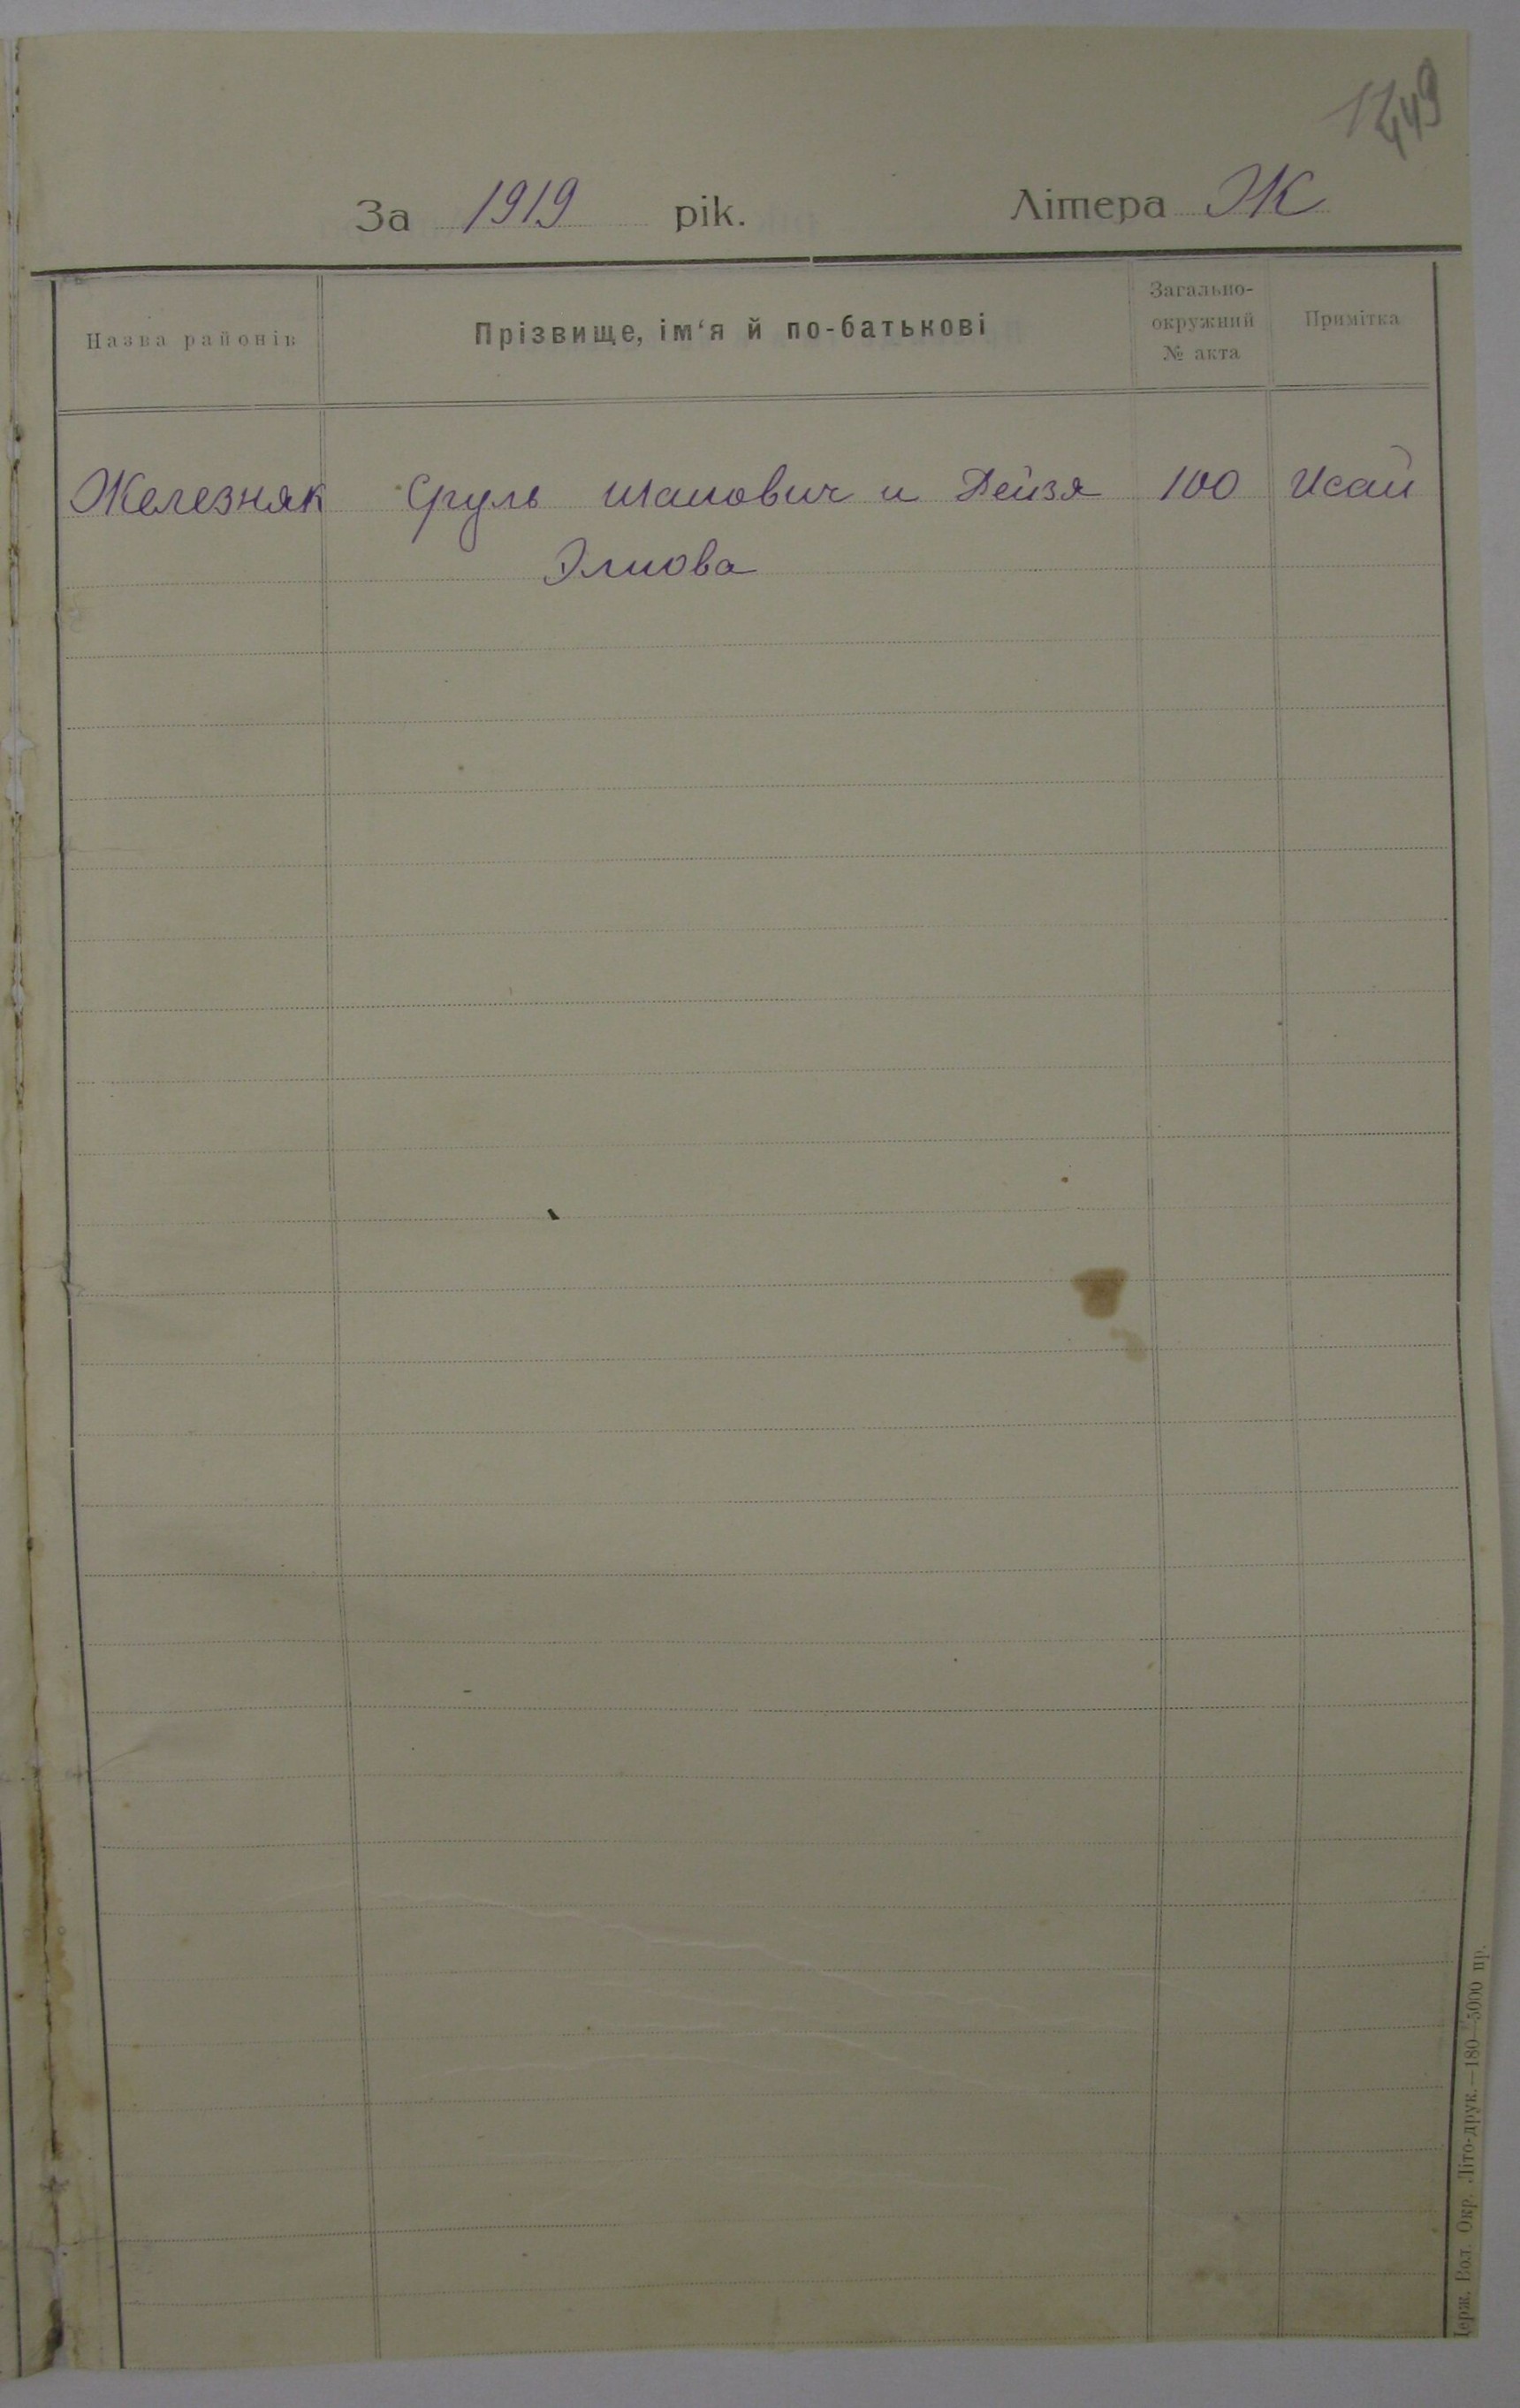 449
За 1919 рік. Літера Ж
Назва районів Прізвище, ім‘я й по-батькові Загально-окружний № акта Примітка
Железняк Сруль Шамович и Дейзя 100 Исай
Элиова
Держ. Вол. Окр. Літо-друк.—180—5000 пр.